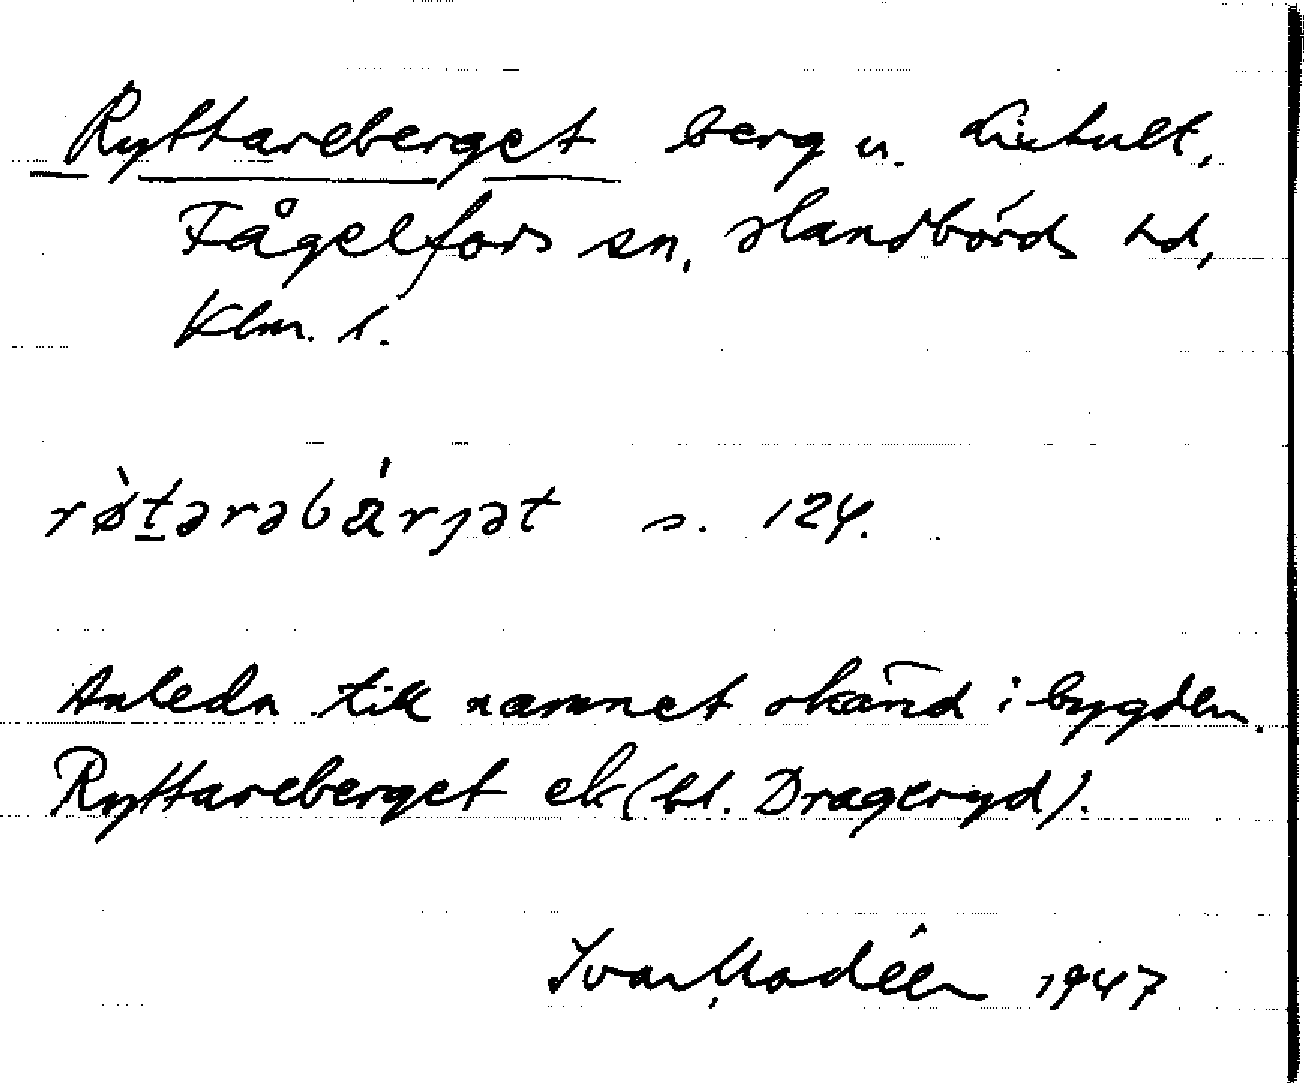 Ryttareberget berg u. Lixhult,
Fågelfors sn, Handbörds hd,
Klm. l.
rø̀t̲ərəbá̈rjət s. 124.
Anledn till namnet okänd i bygden.
Ryttareberget ek (bl. Drageryd).
Ivar Modéer 1947